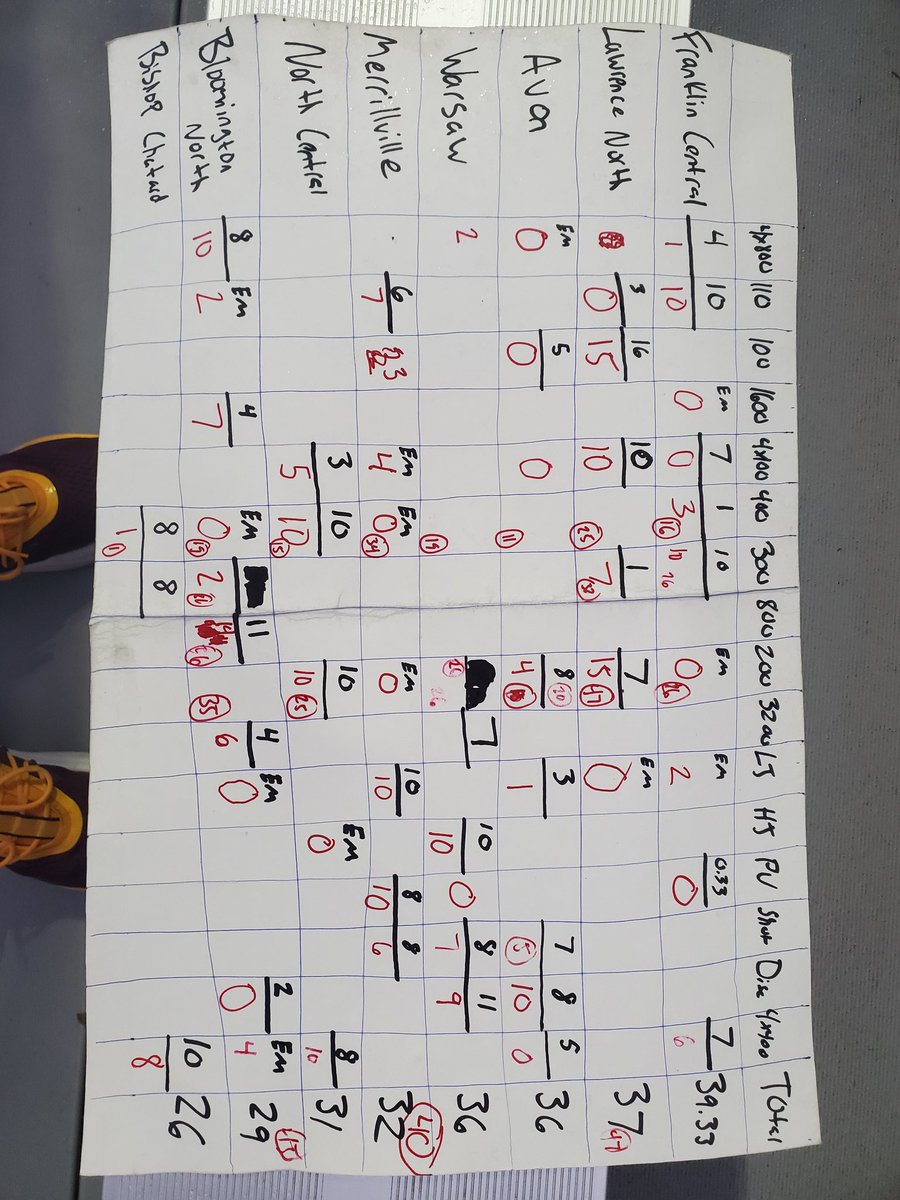 4x800 110 100 1600 4x100 400 300 800 200 3200 LJ HJ PV Shot Disc 4x400 Total
Franklin Central 4 10 Em 7 1 10 Em Em 0.33 7 39.33
1 10 0 0 3 16 10 26 0 26 2 0 6
Lawrence North 3 16 10 1 7 Em 37
0 15 10 25 7 32 15 47 0 47
Avon Em 5 8 3 7 8 5 36
0 0 0 11 4 20 1 5 10 0
Warsaw 7 10 8 11 36
2 19 26 26 10 0 7 9
Merrillville 6 Em Em Em 10 8 8 32
7 3 4 0 34 0 10 10 6 40
North Central 3 10 10 Em 8 31
5 10 15 10 25 0 10
Bloomington North 8 Em 4 Em 11 4 Em 2 Em 29
10 2 7 0 19 2 35 6 0 0 4
Bishop Chatard 8 8 10 26
1 8